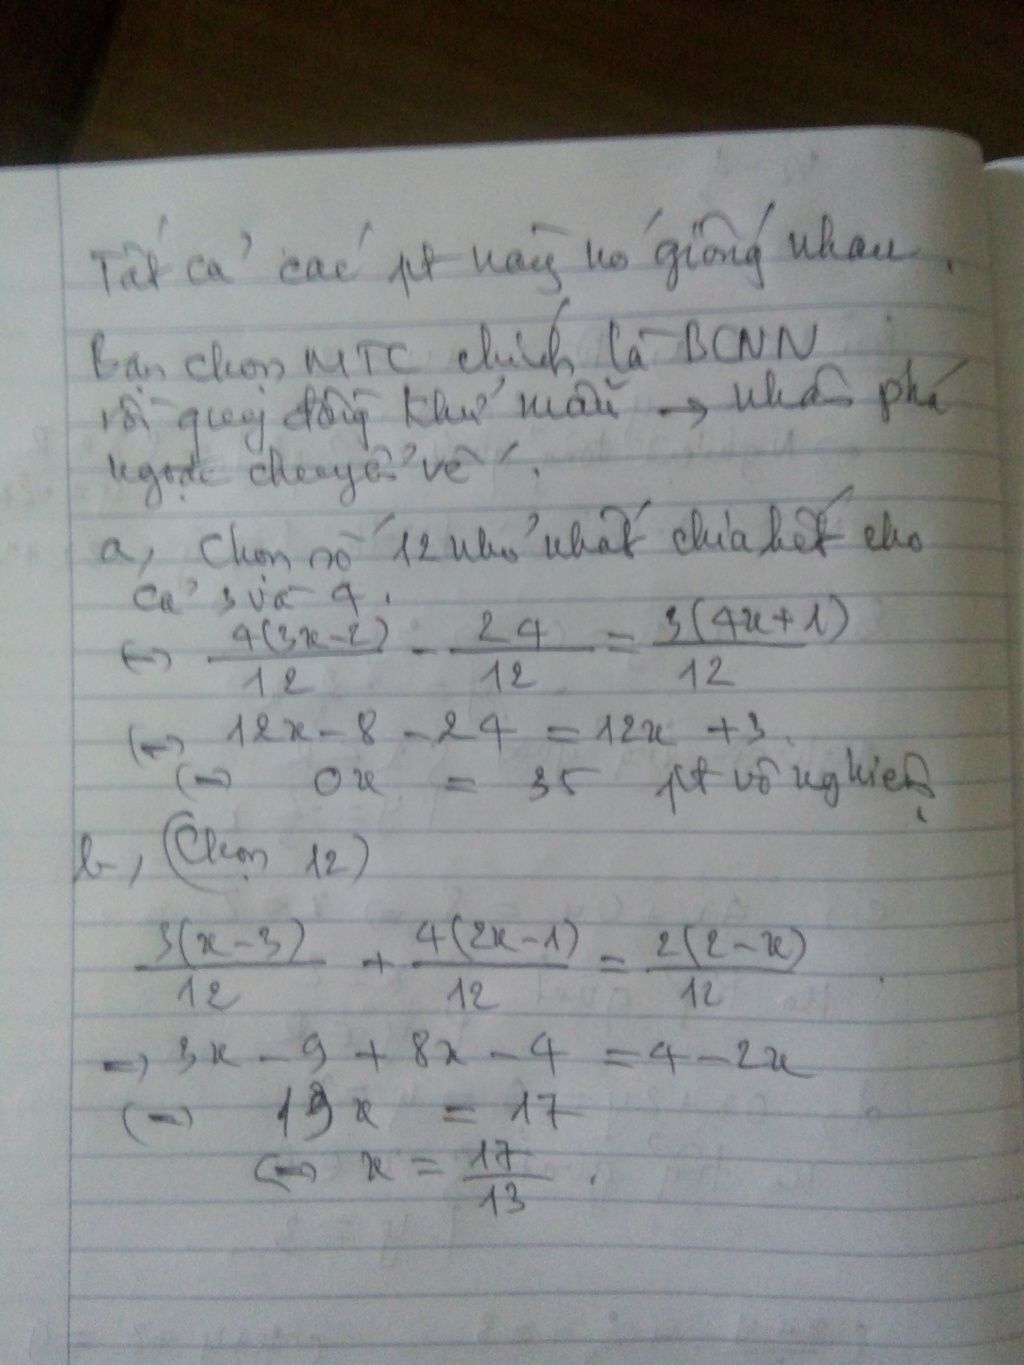 Tất cả các pt này nó giống nhau.
Bạn chọn MTC chính là BCNN
rồi quy đồng khử mẫu → nhân phá
ngoặc chuyển vế.
a, Chọn số 12 nhỏ nhất chia hết cho
cả 3 và 4.
(=) 4(3x-2)/12 - 24/12 = 3(4x+1)/12
(=) 12x - 8 - 24 = 12x + 3
(=) 0x = 35 pt vô nghiệm
b, (Chọn 12)
3(x-3)/12 + 4(2x-1)/12 = 2(2-x)/12
=) 3x - 9 + 8x - 4 = 4 - 2x
(=) 13x = 17
(=) x = 17/13.